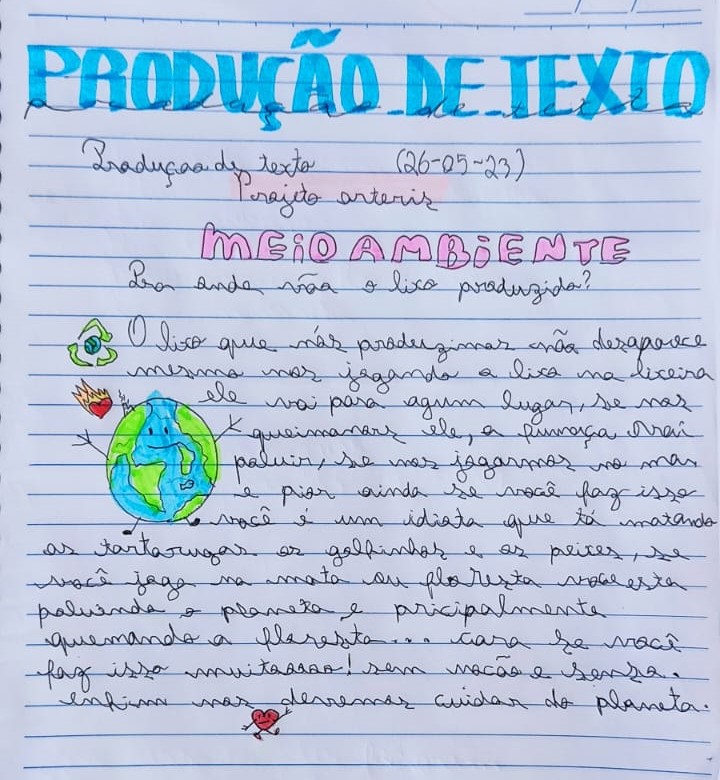 PRODUÇÃO DE TEXTO
produção de texto
Produçao de texto (26-05-23)
Projeto arteris
MEIO AMBIENTE
Pra onde vão o lixo produzido?
O lixo que nós produzimos não desaparece
mesmo nos jogando o lixo na lixeira
ele vai para agum lugar, se nos
queimamos ele, a fumaça vai
poluir, se nos jogarmos no mar
e pior ainda se você faz isso
você é um idiota que tá matando
as tartarugas os golfinhos e os peixes, se
você joga na mata ou floresta voce esta
poluindo o planeta e pricipalmente
quemando a floresta... cara se você
faz isso muitoooo! sem noção e senso.
enfim nos devemos cuidar do planeta.